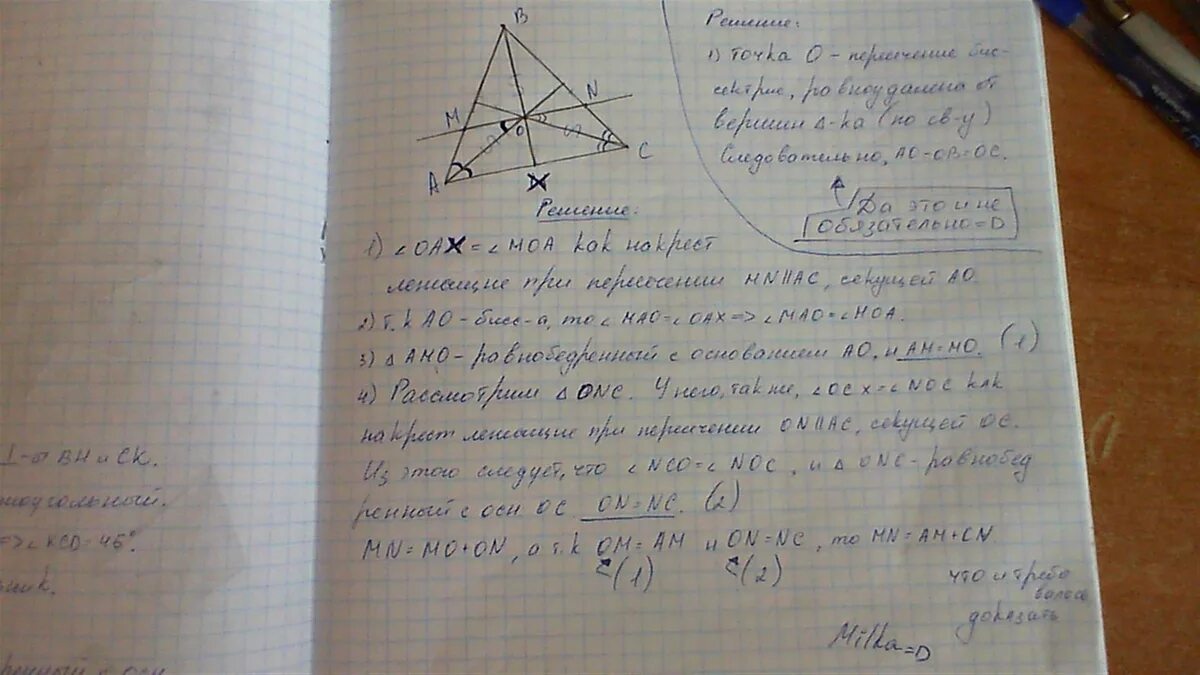 B
M
N
O
A
C
X
Решение:
1) ∠OAX = ∠MOA как накрест
лежащие при пересечении MN||AC, секущей AO.
2) т.к AO-бисс-а, то ∠MAO=∠OAX => ∠MAO=∠MOA.
3) △AMO-равнобедренный с основанием AO, и AM=MO. (1)
4) Рассмотрим △ONC. У него, также, ∠OCX=∠NOC как
накрест лежащие при пересечении ON||AC, секущей OC.
Из этого следует, что ∠NCO=∠NOC, и △ONC-равнобед
ренный с осн OC ON=NC. (2)
MN=MO+ON, а т.к OM=AM и ON=NC, то MN=AM+CN.
(1) (2)
что и требо
валось
доказать
Milka=D
Решение:
1) Точка O - пересечение бис-
сектрис, равноудалена от
вершин △-ка (по св-у)
Следовательно, AO=OB=OC.
Да это и не
обязательно=D
BH и CK.
=>∠KCD=45°.
ник.